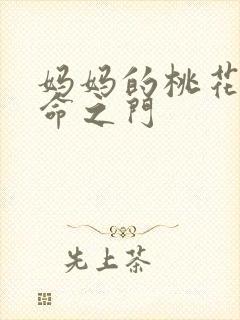 妈妈的桃花
命之门
先上茶